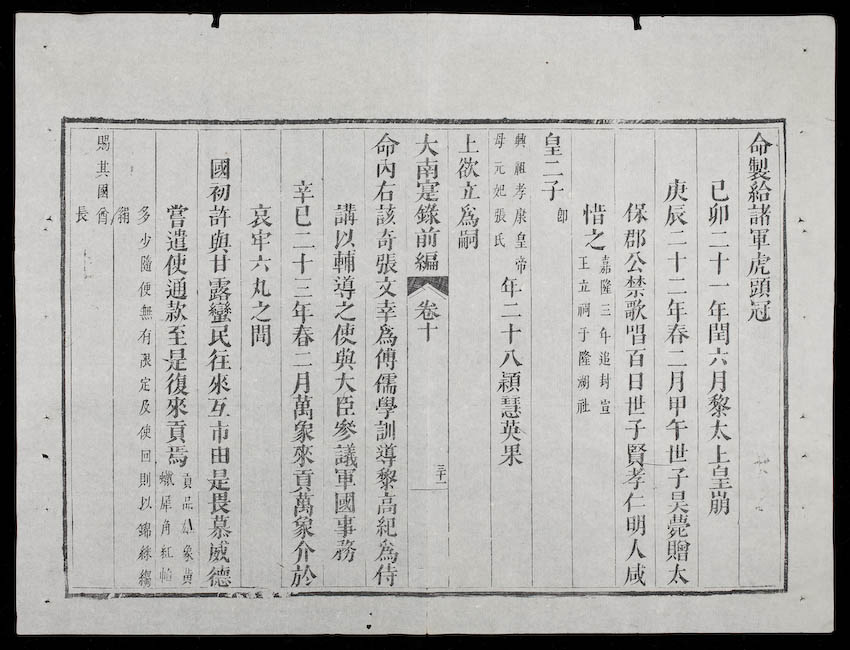 命製給諸軍虎頭冠
己卯二十一年閏六月黎太上皇崩
庚辰二十二年春二月甲午世子昊薨贈太
保郡公禁歌唱百日世子賢孝仁明人咸
惜之嘉隆三年追封宣
王立祠于隆湖社
皇二子即
興祖孝康皇帝
母元妃張氏
年二十八穎慧英果
上欲立爲嗣
大南寔錄前編 卷十 三十一
命內右該奇張文幸爲傅儒學訓導黎高紀爲侍
講以輔導之使與大臣參議軍國事務
辛巳二十三年春二月萬象來貢萬象介於
哀牢六丸之間
國初許與甘露蠻民往來互市由是畏慕威德
嘗遣使通款至是復來貢焉貢品雄象黃
蠟犀角紅
多少隨便無有限定及使回則以錦絲縐
賜其國酋
長